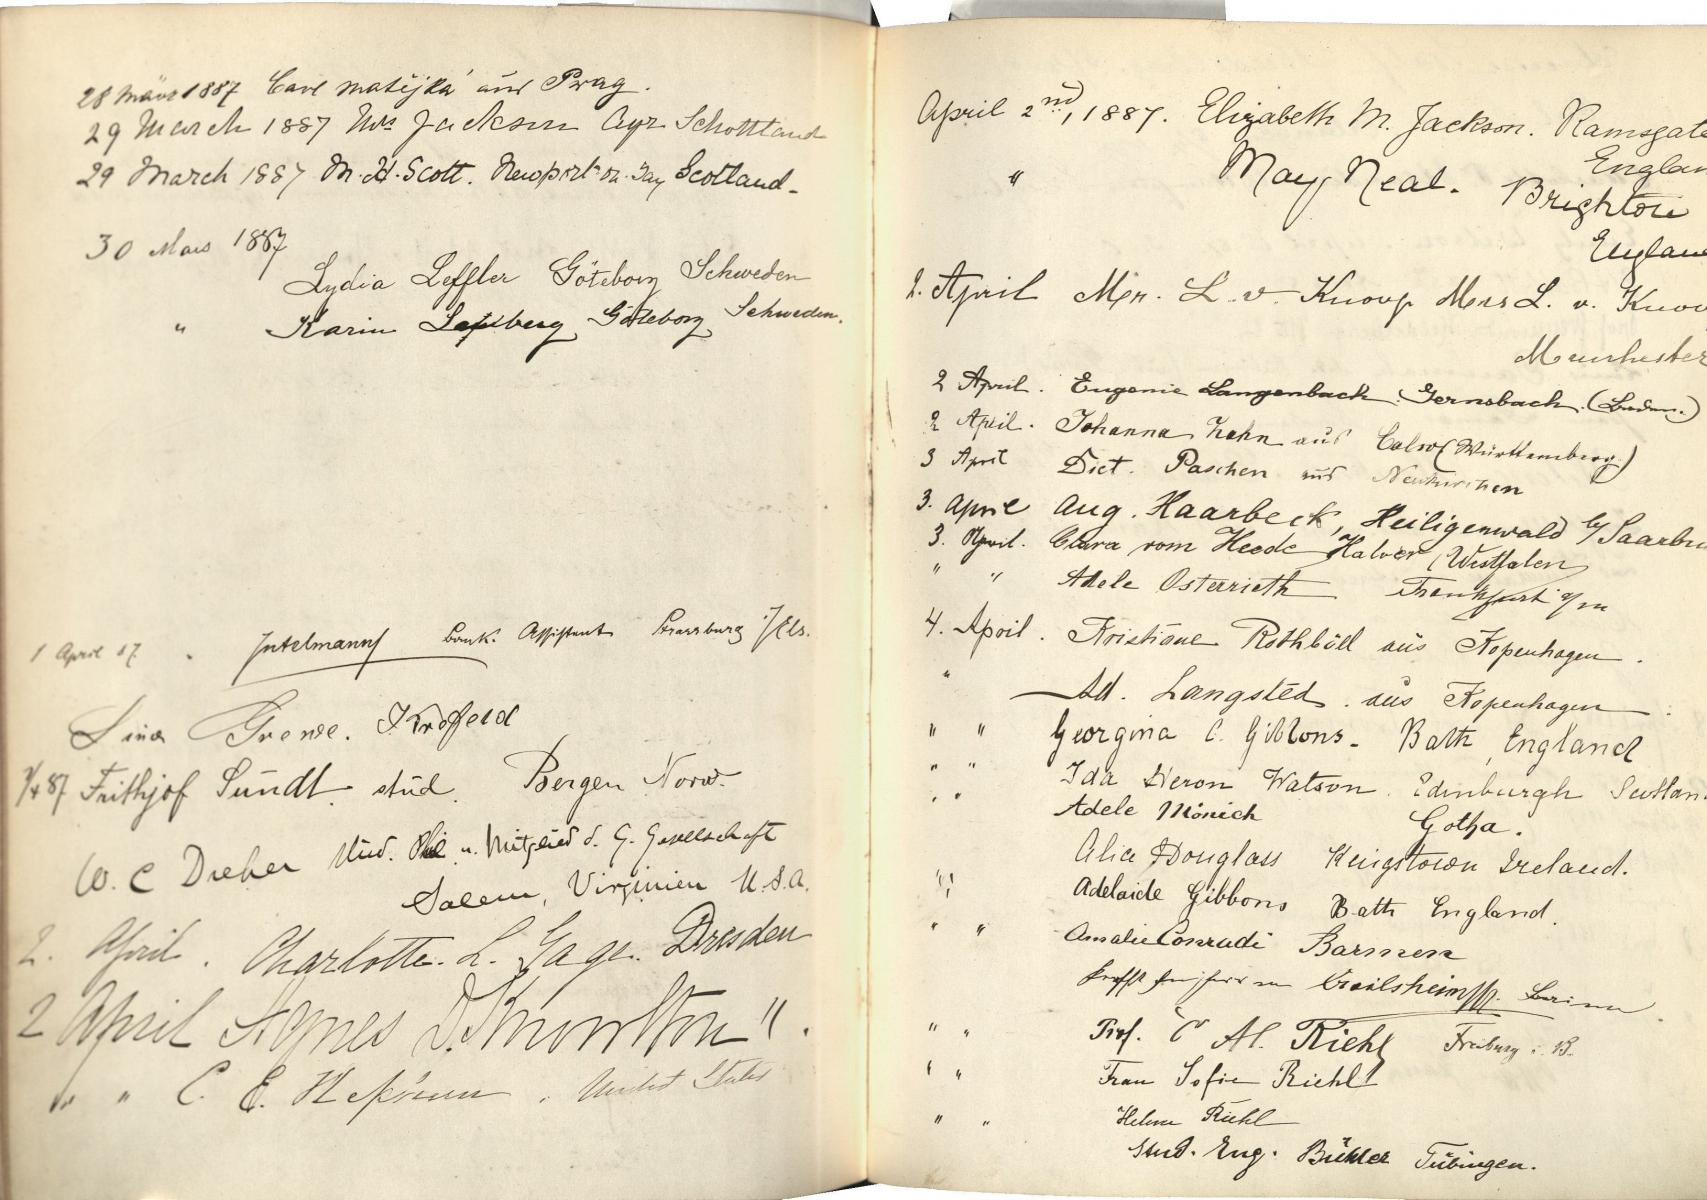 28 März 1887 Carl Matějka aus Prag.
29 March 1887 Mrs Jackson Ayr Schottland
29 March 1887 M. H. Scott. Newport-on-Tay Scotland-
30 Mars 1887
Lydia Leffler Göteborg Schweden
" Karin Göteborg Schweden.
1 April 87. Intelmann Bank. Assistent Strassburg i/Els.
Lina
1/4 87 Frithjof Sundt. stud. Bergen Norw.
W. C Dreher Stud. Phil u. Mitglied d. G. Gesellschaft
Salem, Virginien U.S.A.
2. April. Charlotte. L. Gage. Dresden
2 April Agnes D. Knowlton ".
" " C. E. United States
April 2nd, 1887. Elizabeth M. Jackson. Ramsgate
England
" May Neal. Brighton
England
2. April Mr. L. v. Knoop Mrs L. v. Knoop
Manchester
2 April. Eugenie Langenbach. Gernsbach. (Baden.)
2 April. Johanna Zahn aus Calw (Württemberg)
3 April Diet. Paschen aus Neukirchen
3. April Aug. Haarbeck, Heiligenwald b/ Saarbru
3. April. Clara vom Heede Halver (Westfalen)
" " Adele Osterrieth Frankfurt a/m
4. April. Kristiane Rothböll aus Kopenhagen.
" Ad. Langsted. aus Kopenhagen.
" " Georgina C. Gibbons. Bath, England
" " Ida Heron Watson. Edinburgh Scotland
" " Adele Mönich Gotha.
Alice Douglass Kingstown Ireland.
" " Adelaide Gibbons Bath England.
" " Amalie Conradi Barmen
Crailsheim
" " Prof. Al. Riehl Freiburg i. B.
" " Frau Sofie Riehl
" " Helene Riehl
Stud. Eng. Bühler Tübingen.